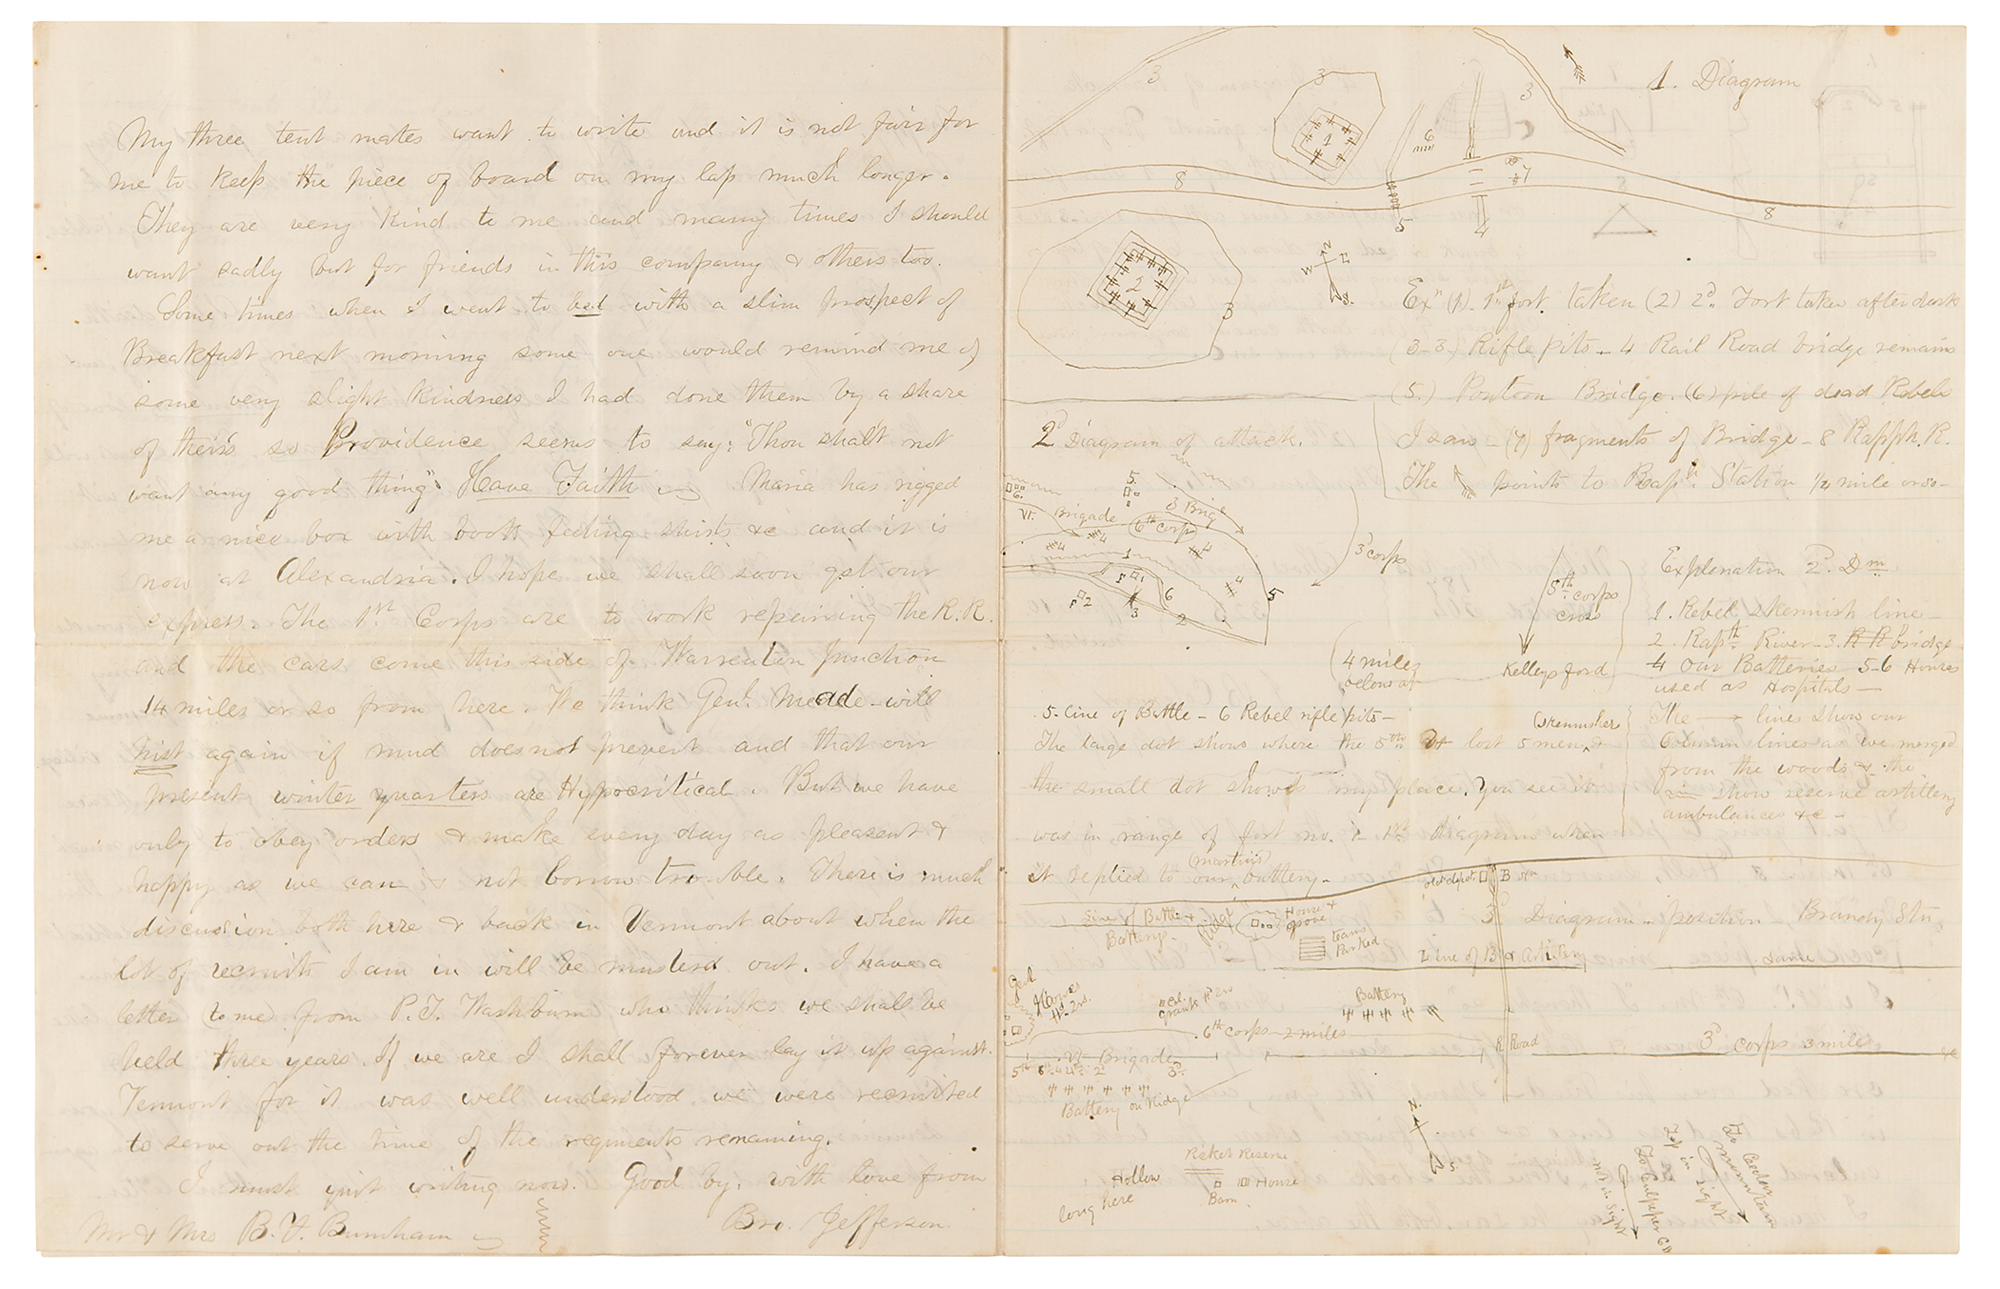 My three tent mates want to write and it is not fair for
me to keep the piece of board on my lap much longer.
They are very kind to me and many times I should
want sadly but for friends in this company & others too.
Some times when I went to bed with a slim prospect of
Breakfast next morning some one would remind me of
some very slight kindness I had done them by a share
of theirs so Providence seems to say: "Thou shalt not
want any good thing" Have Faith Maria has rigged
me a nice box with boots feeting shirts &c and it is
now at Alexandria. I hope we shall soon get our
express. The 1st Corps are to work repairing the R.R.
and the cars come this side of Warrenton Junction
14 miles or so from here. We think Genl. Meade will
again if mud does not prevent and that our
present winter quarters are Hypocritical. But we have
only to obey orders & make every day as pleasent &
happy as we can & not borrow trouble. There is much
discussion both here & back in Vermont about when the
lot of recruits I am in will be musterd out. I have a
letter to me from P.T. Washburn who thinks we shall be
held three years. If we are I shall forever lay it up against
Vermont for it was well understood we were recruited
to serve out the time of the regiments remaining.
I must quit writing now. Good by. with love from
Mr & Mrs B. F. Burnham Bro. Jefferson
1. Diagram
3
3
3
1
6
8
7
5
4
8
N
W
S.
2
3
Ex" (1). 1st fort. taken (2) 2d. Fort taken after dark
(3-3) Rifle pits - 4 Rail Road bridge remains
(5.) Pontoon Bridge. (6) pile of dead Rebels
I saw - (7) fragments of Bridge - 8 Rapph. R.
The points to Rap. Station 1/2 mile or so -
2d Diagram of attack.
6.
5.
Vt. Brigade
3 Brig
6th corps
4
4
4
1
4
5
2
3
6
2
3d corps
5th corps
cross
4 miles
below at
Kelleys ford
Explenation 2d. Dm
1. Rebel skermish line -
2. Rapth. River - 3. R R bridge
4 Our Batteries 5-6 Houses
used as Hospitals -
5. Line of Battle - 6 Rebel rifle pits -
(skermisher
The large dot shows where the 5th Vt lost 5 men &
the small dot shows my place. You see it
was in range of fort no. 1 1st Diagram when
(martins)
it replied to our battery -
The lines show our
Column lines as we merged
from the woods & the
show reserve artillery
ambulances &c -
old depot B Stn
3d Diagram - position - Brandy Stn.
Line of Battle &
Battery.
Ridge
House &
grove
teams
Parked
Line of B & Artillery
same
Genl
Howes
Hd. Qrs.
Col.
Grants Hd Qrs
Battery
6th Corps - 2 miles
R Road
3d Corps 3 miles
&c
Vt Brigade
5th 6th 4th 2d 3d
Battery on Ridge
N.
S
Picket Reserve
Hollow
long here
Barn
House
To Culpeper CH
not in sight
Top in
sight
To Cedar
mountain